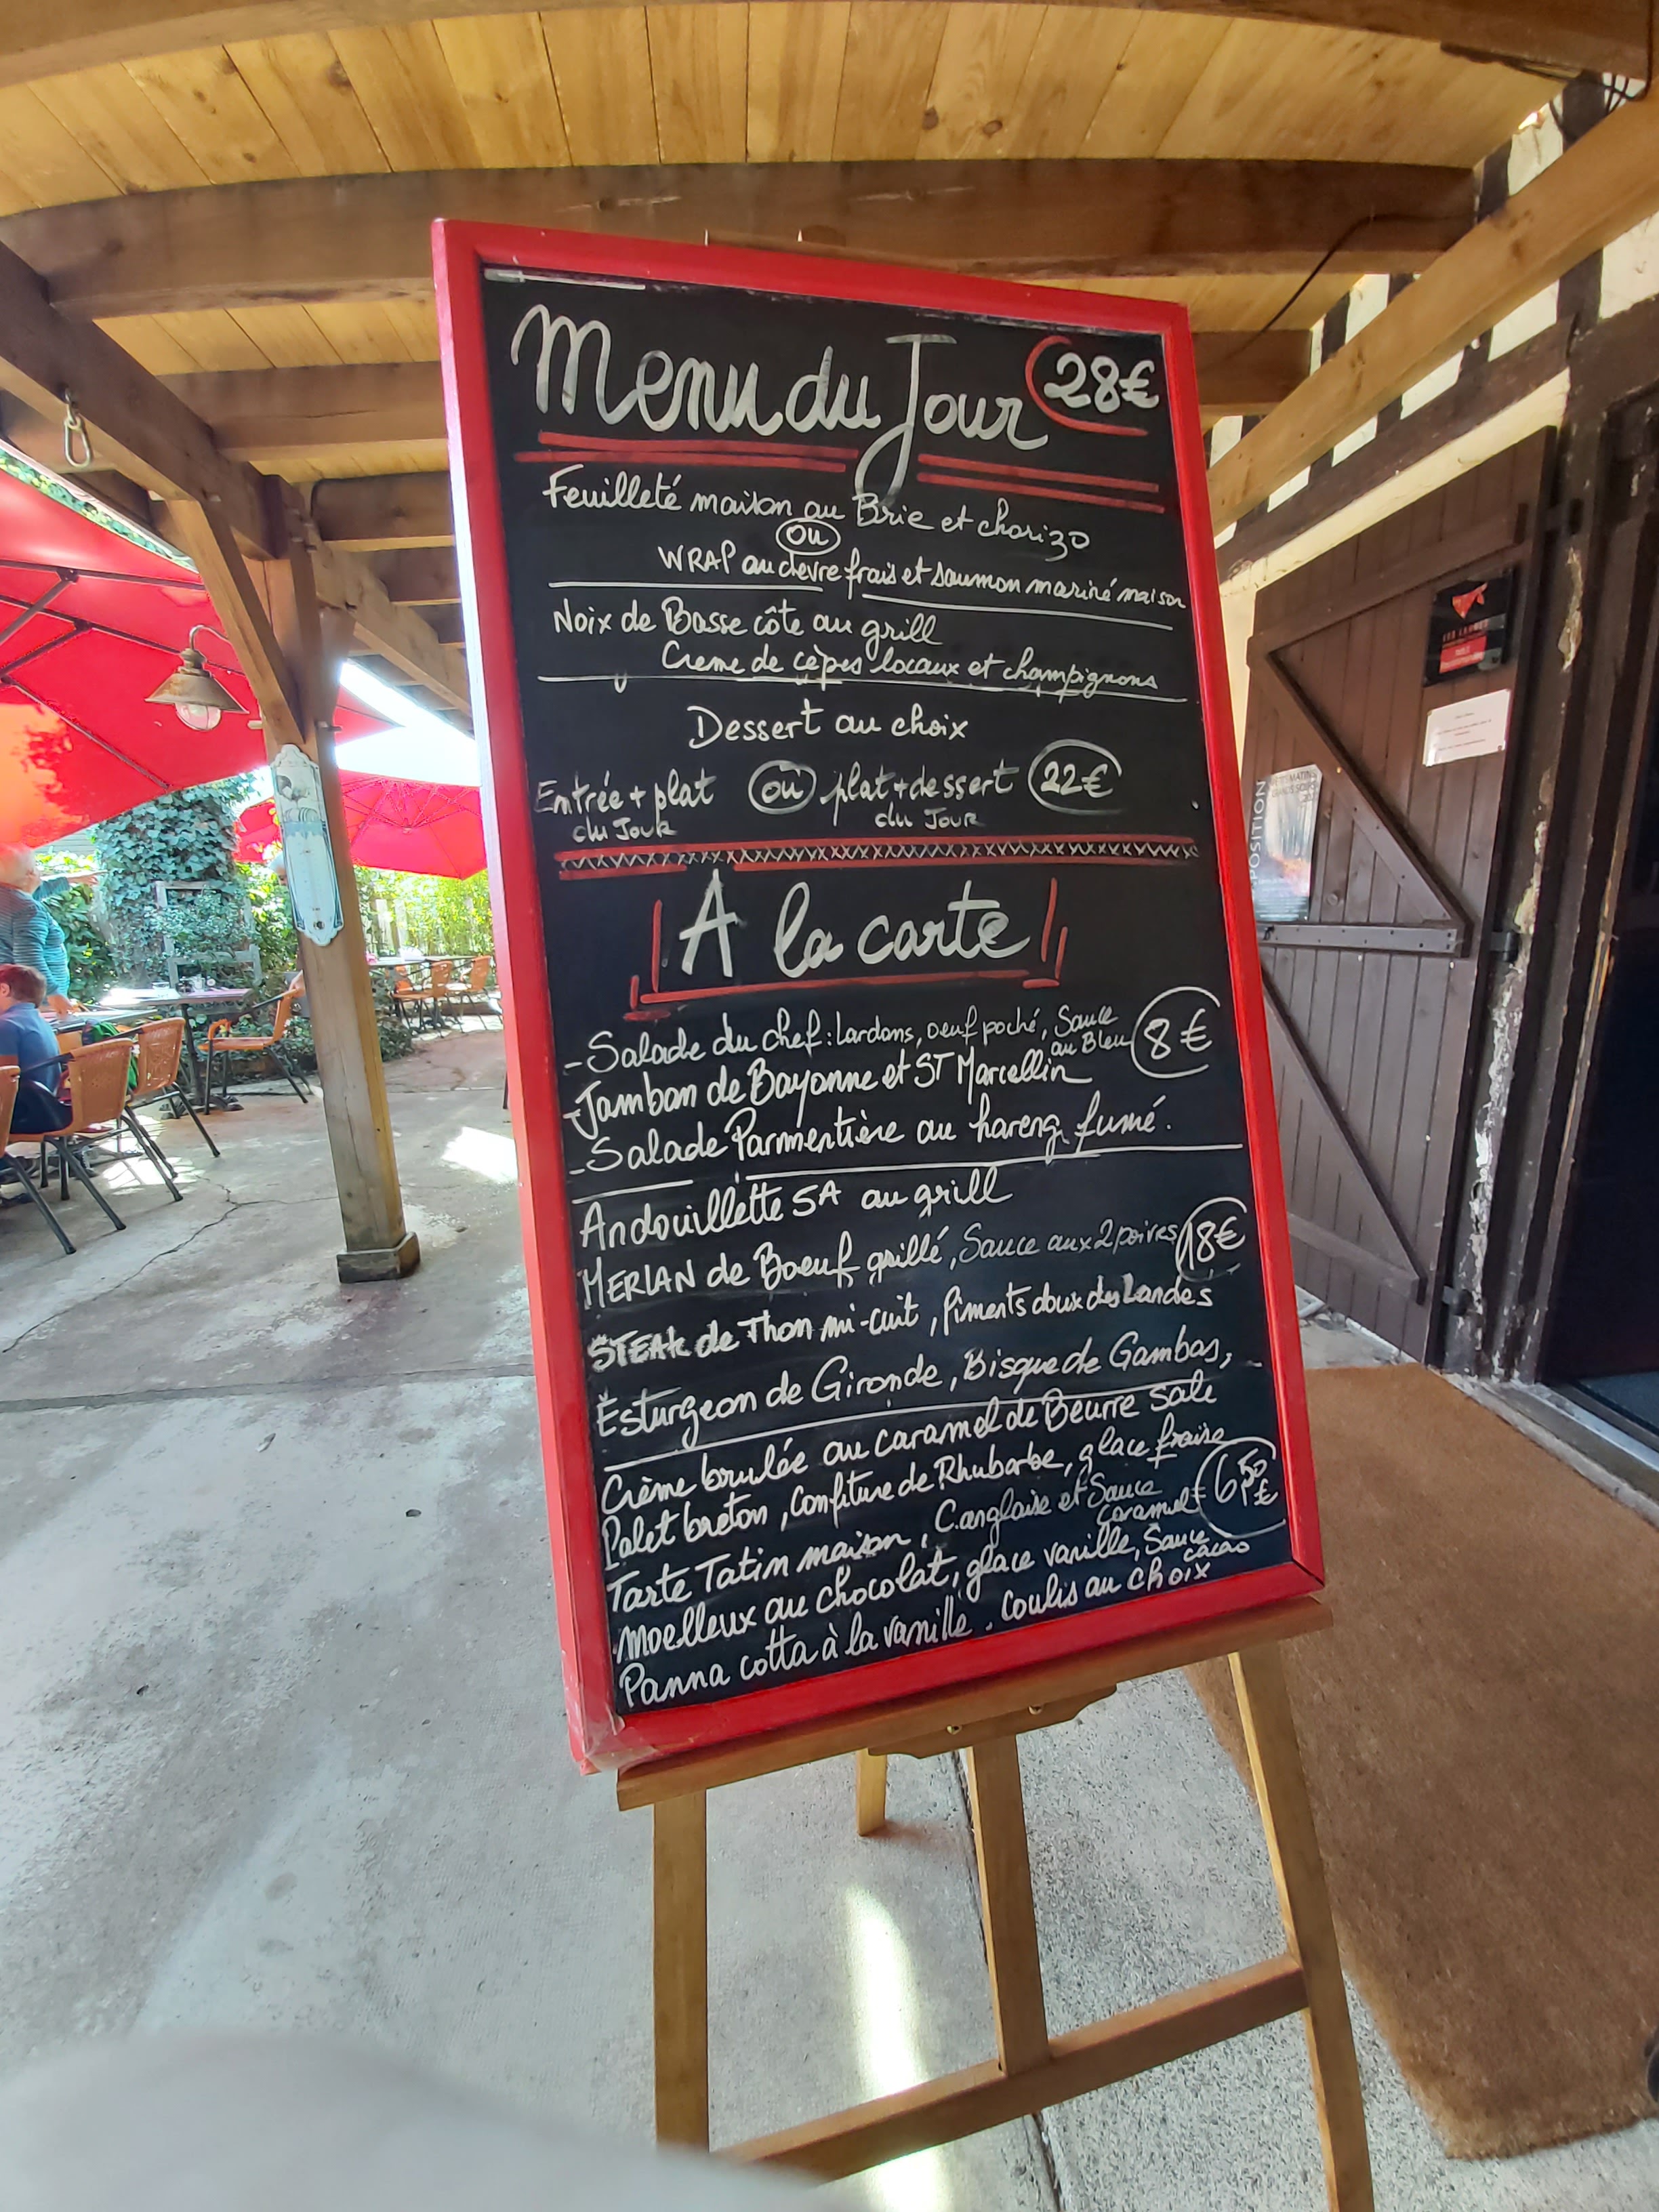 Menu du Jour 28€
Feuilleté maison au Brie et chorizo
ou
WRAP au chevre frais et saumon mariné maison
Noix de Basse côte au grill
Creme de cèpes locaux et champignons
Dessert au choix
Entrée + plat ou plat + dessert 22€
du Jour du Jour
A la carte
- Salade du chef : lardons, oeuf poché, Sauce au Bleu 8€
- Jambon de Bayonne et ST Marcellin
- Salade Parmentière au hareng fumé.
Andouillette 5A au grill
MERLAN de Boeuf grillé, Sauce aux 2 poivres 18€
STEAK de Thon mi-cuit, piments doux des Landes
Esturgeon de Gironde, Bisque de Gambas,
Crème brulée au caramel de Beurre salé
Palet breton, Confiture de Rhubarbe, glace fraise
Tarte Tatin maison, C. anglaise et Sauce Caramel 6,50€
Moelleux au chocolat, glace vanille, Sauce cacao
Panna cotta à la vanille. Coulis au choix
POSITION